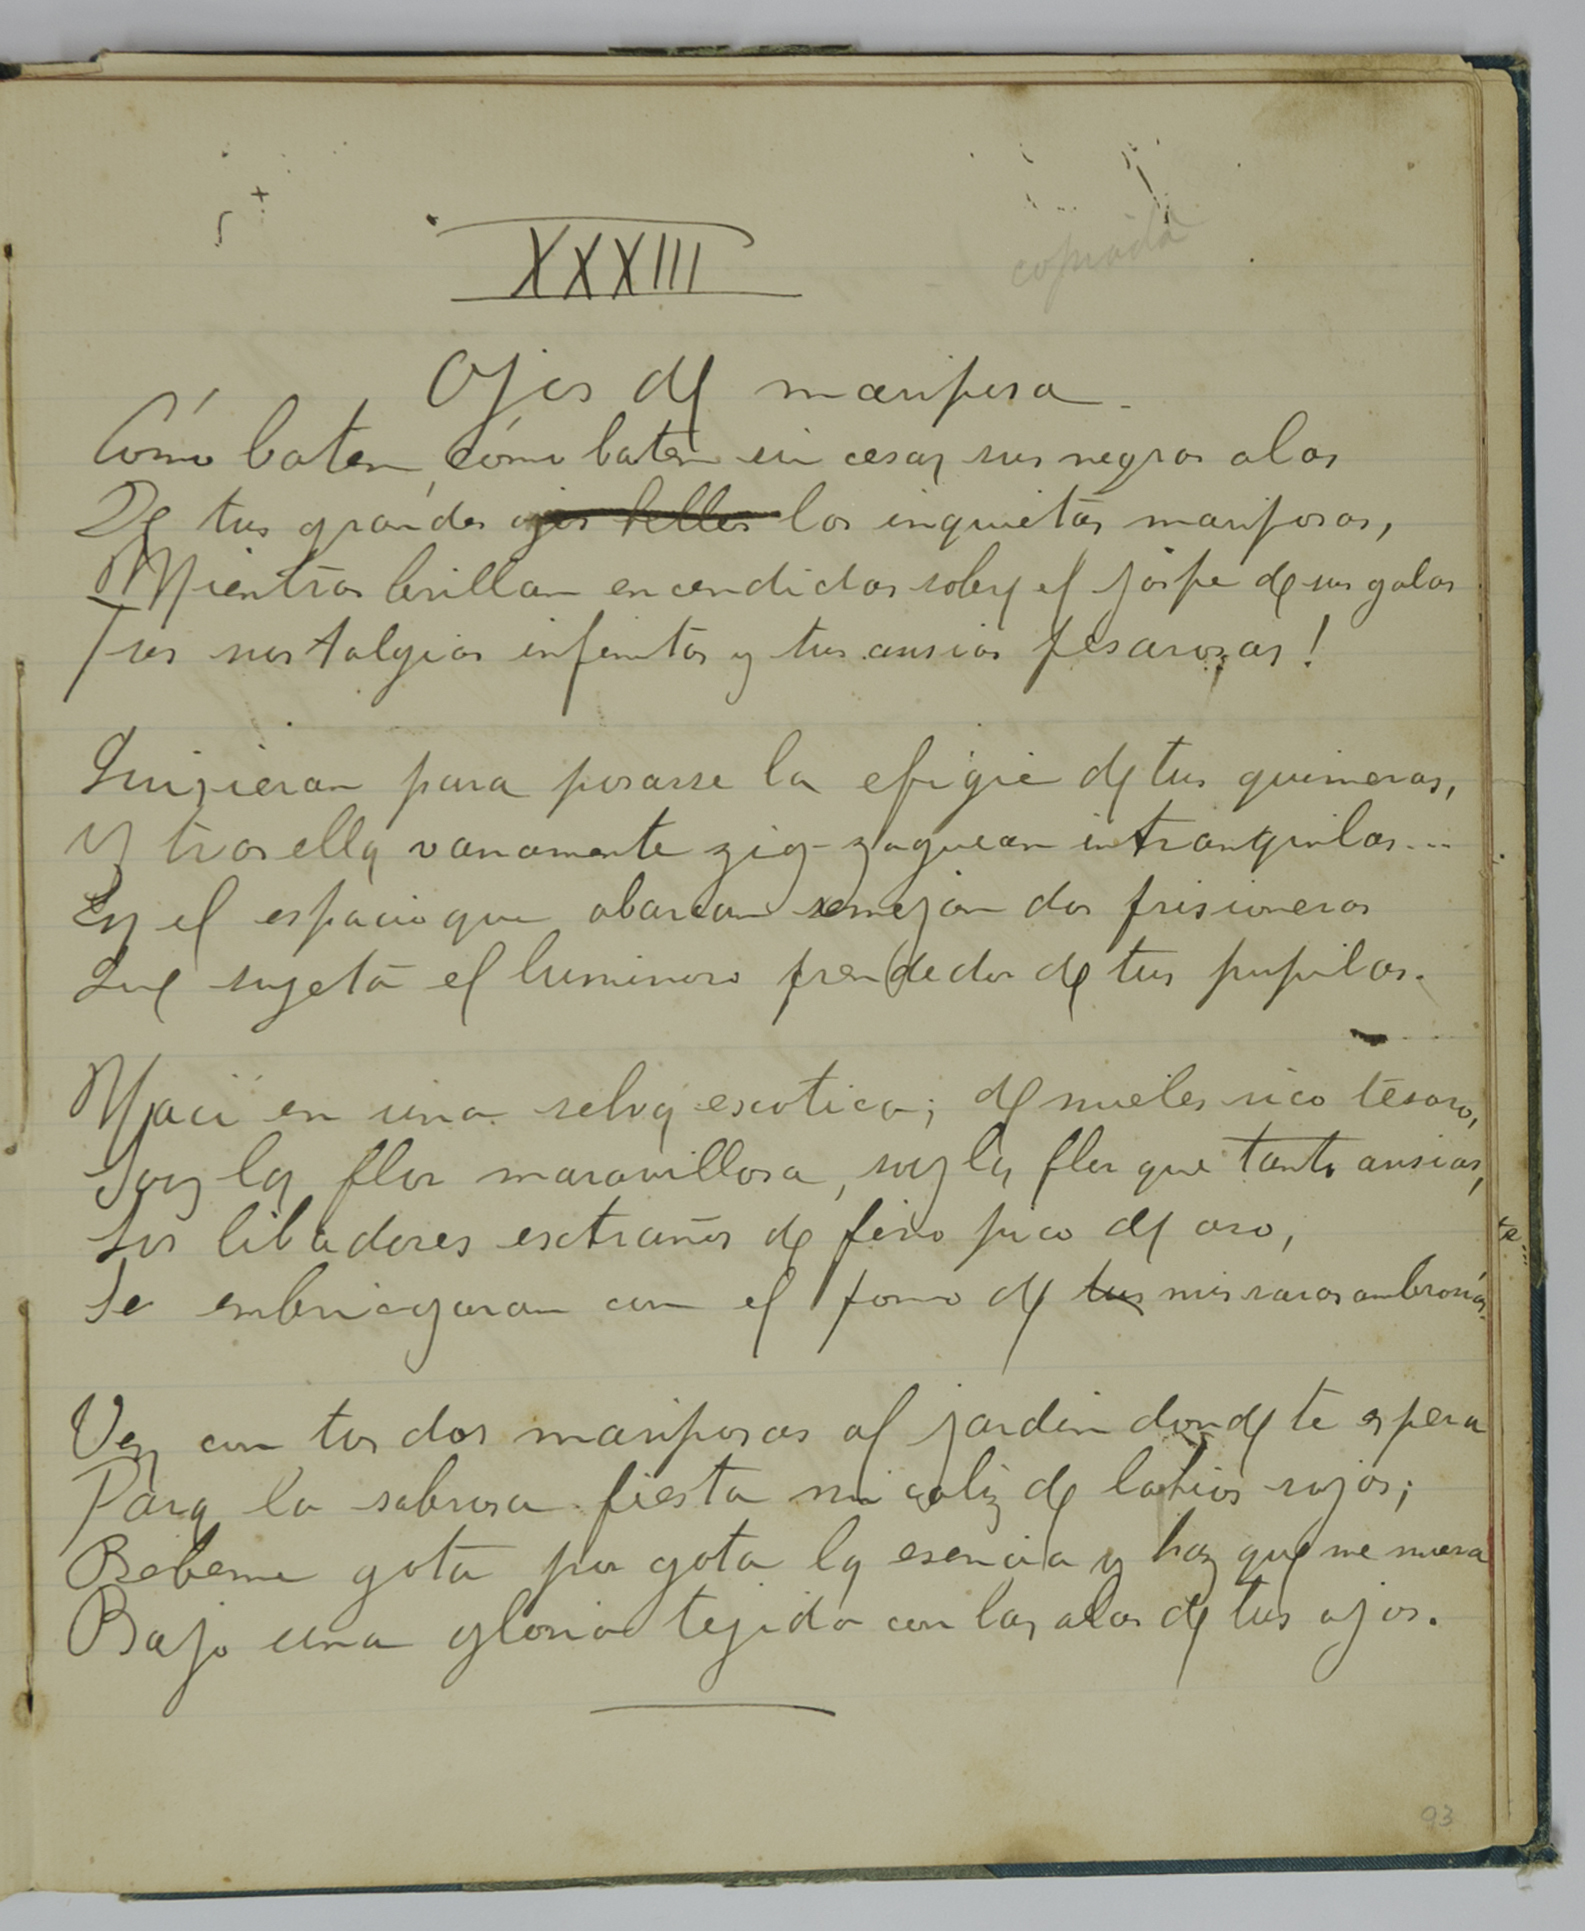 XXXIII
copiada
Ojos de mariposa
Cómo baten, cómo baten sin cesar sus negras alas
De tus grandes ojos bellos las inquietas mariposas,
Mientras brillan encendidas sobre el jaspe de sus galas
Tus nostalgias infinitas y tus ansias pesarosas!
Quisieran para posarse la efigie de tus quimeras,
Y tras ella vanamente zig-zaguean intranquilas...
En el espacio que abarcan semejan dos prisioneras
Que sujeta el luminoso prendedor de tus pupilas.
Nací en una selva exotica; de mieles rico tesoro,
Soy la flor maravillosa, soy la flor que tanto ansias,
Los libadores extraños de fino pico de oro,
Se embriagaran con el pomo de tus mis raras ambrosías.
Ven con tus dos mariposas al jardin donde te espera
Para la sabrosa fiesta mi caliz de labios rojos;
Bebeme gota por gota la esencia y haz que me muera
Bajo una gloria tejida con las alas de tus ojos.
93